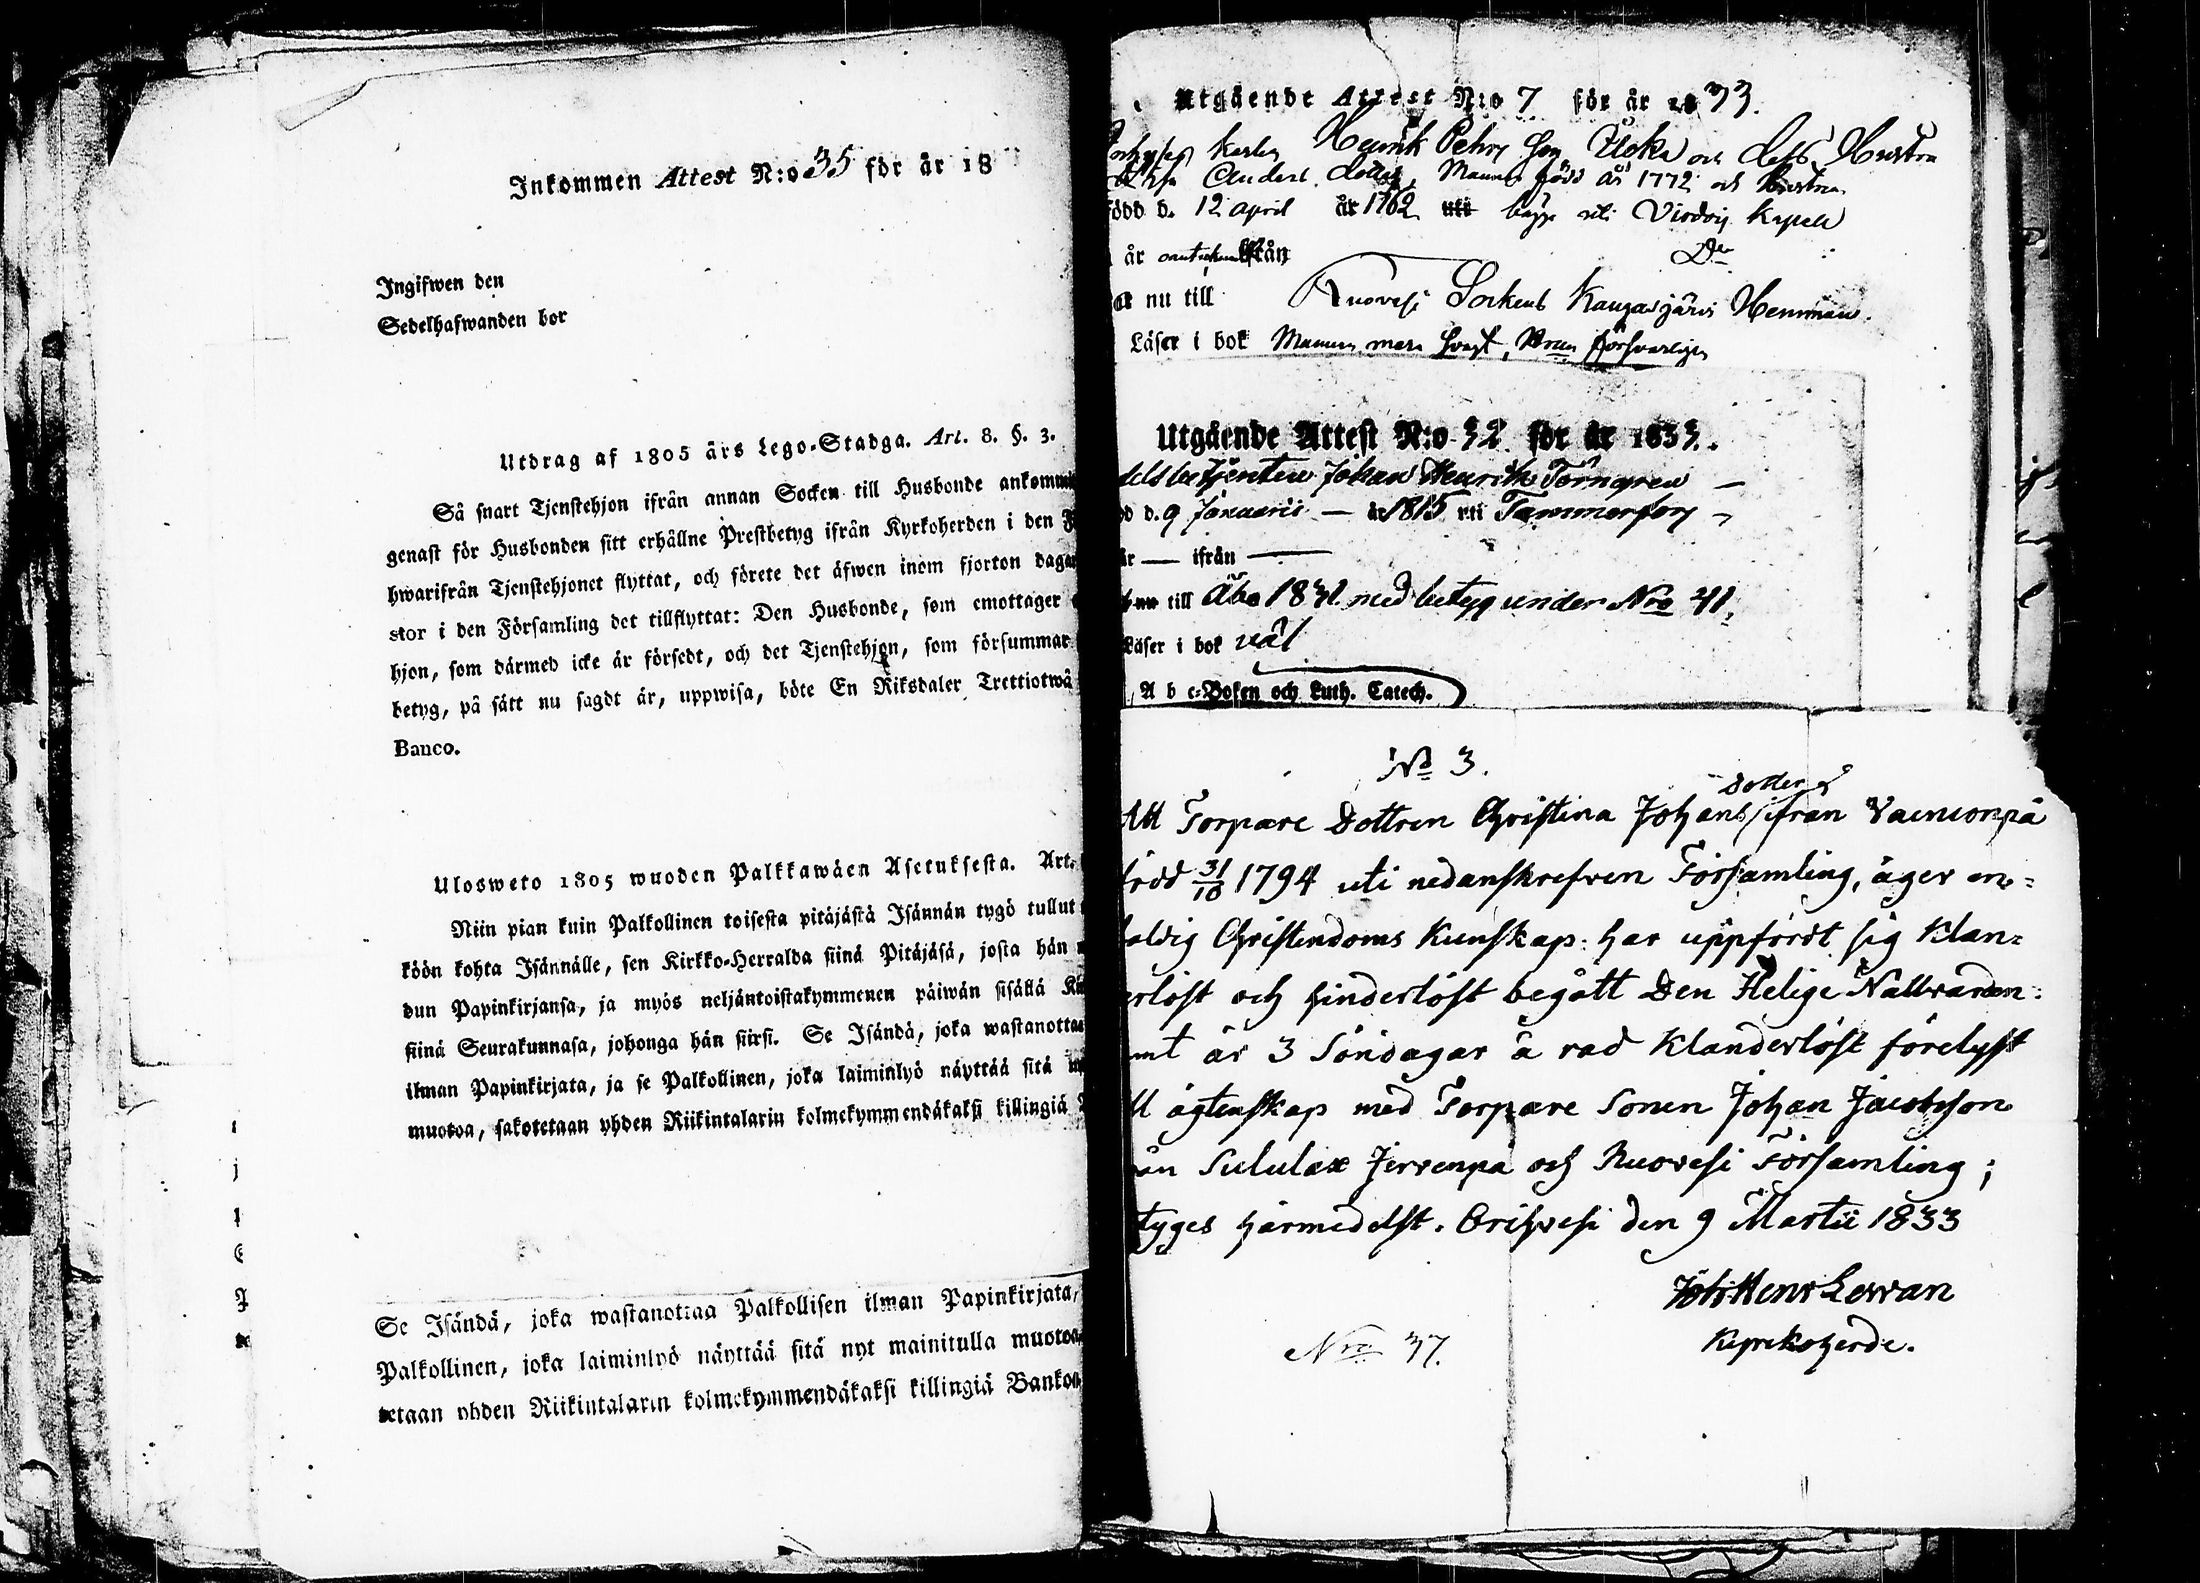 Inkommen Attest N:o 35 för år 18
Ingifwen den
Sedelhafwanden bor
Utdrag af 1805 års Lego-Stadga. Art. 8. §. 3.
Så snart Tjenstehjon ifrån annan Socken till Husbonde ankommi
genast för Husbonden sitt erhållne Prestbetyg ifrån Kyrkoherden i den F
hwarifrån Tjenstehjonet flyttat, och förete det äfwen inom fjorton dagar
stor i den Församling det tillflyttat: Den Husbonde, som emottager
hjon, som därmed icke är försedt, och det Tjenstehjon, som försummar
betyg, på sätt nu sagdt är, uppwisa, böte En Riksdaler Trettiotwå
Banco.
Ulosweto 1805 wuoden Palkkawäen Asetuksesta. Art.
Niin pian kuin Palkollinen toisesta pitäjästä Isännän tygö tullut
köön kohta Isännälle, sen Kirkko-Herralda siinä Pitäjäsä, josta hän
dun Papinkirjansa, ja myös neljäntoistakymmenen päiwän sisällä Ki
siinä Seurakunnasa, johonga hän siirsi. Se Isändä, joka wastanottaa
ilman Papinkirjata, ja se Palkollinen, joka laiminlyö näyttää sitä
muotoa, sakotetaan yhden Riikintalarin kolmekymmendäkaksi killingiä
Se Isändä, joka wastanottaa Palkollisen ilman Papinkirjata,
Palkollinen, joka laiminlyö näyttää sitä nyt mainitulla muotoa,
tetaan yhden Riikintalarin kolmekymmendäkaksi killingiä Banko
Utgående Attest N:o 7 för år 1833.
Karlen Henrik Pehrs Son och dess Hustru
Anders dotter, Mannen född år 1772 och Hustrun
född d. 12 April år 1762 uti begge uti Virdois Kapell
år ifrån Do
nu till Ruovesi Sockens Kangasjärvi Hemman.
Läser i bok Mannen svagt, Hrun försvarligen
Utgående Attest N:o 32 för år 1833.
betjenten Johan Henrik Törngren —
d. 9 Januarii — år 1815 uti Tammerfors
år — ifrån —
nu till Åbo 1831 med betyg under Nro 41.
Läser i bok väl
, A b c-Boken och Luth. Catech.
No 3.
Att Torpare Dottren Christina Johans dotter ifrån Vainionpä
född 31/10 1794 uti nedanskrefven Församling, äger en-
faldig Christendoms Kunskap: har uppfördt sig Klan-
erlöst och hinderlöst begått Den Helige Nattvarden:
mt är 3 Söndagar å rad Klanderlöst förelyst
ll ägtenskap med Torpare Sonen Johan Jacobsson
ån Sululax Jervenpä och Ruovesi Församling;
tyges härmedelst. Orihvesi den 9 Martii 1833
Joh: Henr
Kyrkoherde.
Nro 37.